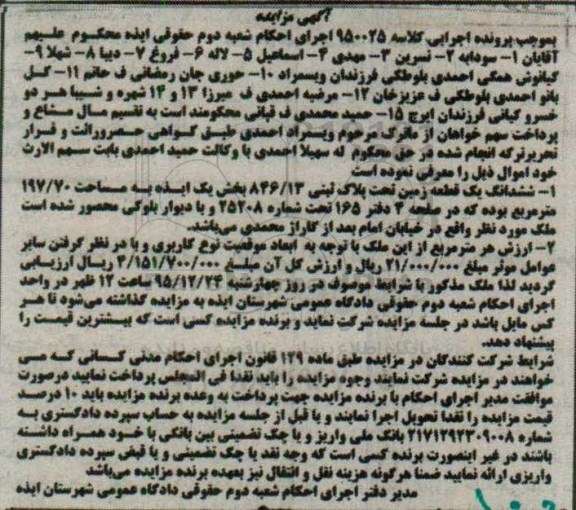 آگهی مزایده
بموجب پرونده اجرایی کلاسه ۹۵۰۰۲۵ اجرای احکام شعبه دوم حقوقی ایذه محکوم علیهم
آقایان ۱- سودابه ۲- نسرین ۳- مهدی ۴- اسماعیل ۵- لاله ۶- فروغ ۷- دیبا ۸- شهلا ۹-
کیانوش همگی احمدی بلوطکی فرزندان ویسمراد ۱۰- حوری جان رمضانی ف حاتم ۱۱- گل
بانو احمدی بلوطکی ف عزیزخان ۱۲- مرضیه احمدی ف میرزا ۱۳ و ۱۴ شهره و شیبا هر دو
خسرو کیانی فرزندان ایرج ۱۵- حمید محمدی ف قبانی محکومند است به تقسیم مال مشاع و
پرداخت سهم خواهان از ماترک مرحوم ویسراد احمدی طبق گواهی حصروراثت و قرار
تحریرترکه انجام شده در حق محکوم له سهیلا احمدی با وکالت حمید احمدی بابت سهم الارث
خود اموال ذیل را معرفی نموده است
۱- ششدانگ یک قطعه زمین تحت پلاک ثبتی ۸۴۶/۱۳ بخش یک ایذه به مساحت ۱۹۷/۷۰
مترمربع بوده که در صفحه ۴ دفتر ۱۶۵ تحت شماره ۲۵۲۰۸ و با دیوار بلوکی محصور شده است
ملک مورد نظر واقع در خیابان امام بعد از گاراژ محمدی می‌باشد.
۲- ارزش هر مترمربع از این ملک با توجه به ابعاد موقعیت نوع کاربری و با در نظر گرفتن سایر
عوامل موثر مبلغ ۲۱/۰۰۰/۰۰۰ ریال و ارزش کل آن مبلغ ۴/۱۵۱/۷۰۰/۰۰۰ ریال ارزیابی
گردید لذا ملک مذکور با شرایط موصوف در روز چهارشنبه ۹۵/۱۲/۲۴ ساعت ۱۲ ظهر در واحد
اجرای احکام شعبه دوم حقوقی دادگاه عمومی شهرستان ایذه به مزایده گذاشته می‌شود تا هر
کس مایل باشد در جلسه مزایده شرکت نماید و برنده مزایده کسی است که بیشترین قیمت را
پیشنهاد دهد.
شرایط شرکت کنندگان در مزایده طبق ماده ۱۲۹ قانون اجرای احکام مدنی کسانی که می
خواهند در مزایده شرکت نمایند وجوه مزایده را باید نقدا فی المجلس پرداخت نمایید درصورت
موافقت مدیر اجرای احکام با برنده مزایده جهت پرداخت به وعده برنده مزایده باید ۱۰ درصد
قیمت مزایده را نقدا تحویل اجرا نمایند و یا قبل از جلسه مزایده به حساب سپرده دادگستری به
شماره ۲۱۷۱۲۹۲۳۰۹۰۰۸ بانک ملی واریز و یا چک تضمینی بین بانکی با خود همراه داشته
باشند در غیر اینصورت برنده کسی است که وجه نقد یا چک تضمینی و یا قبض سپرده دادگستری
واریزی ارائه نمایید ضمنا هرگونه هزینه نقل و انتقال نیز بعهده برنده مزایده می‌باشد
مدیر دفتر اجرای احکام شعبه دوم حقوقی دادگاه عمومی شهرستان ایذه